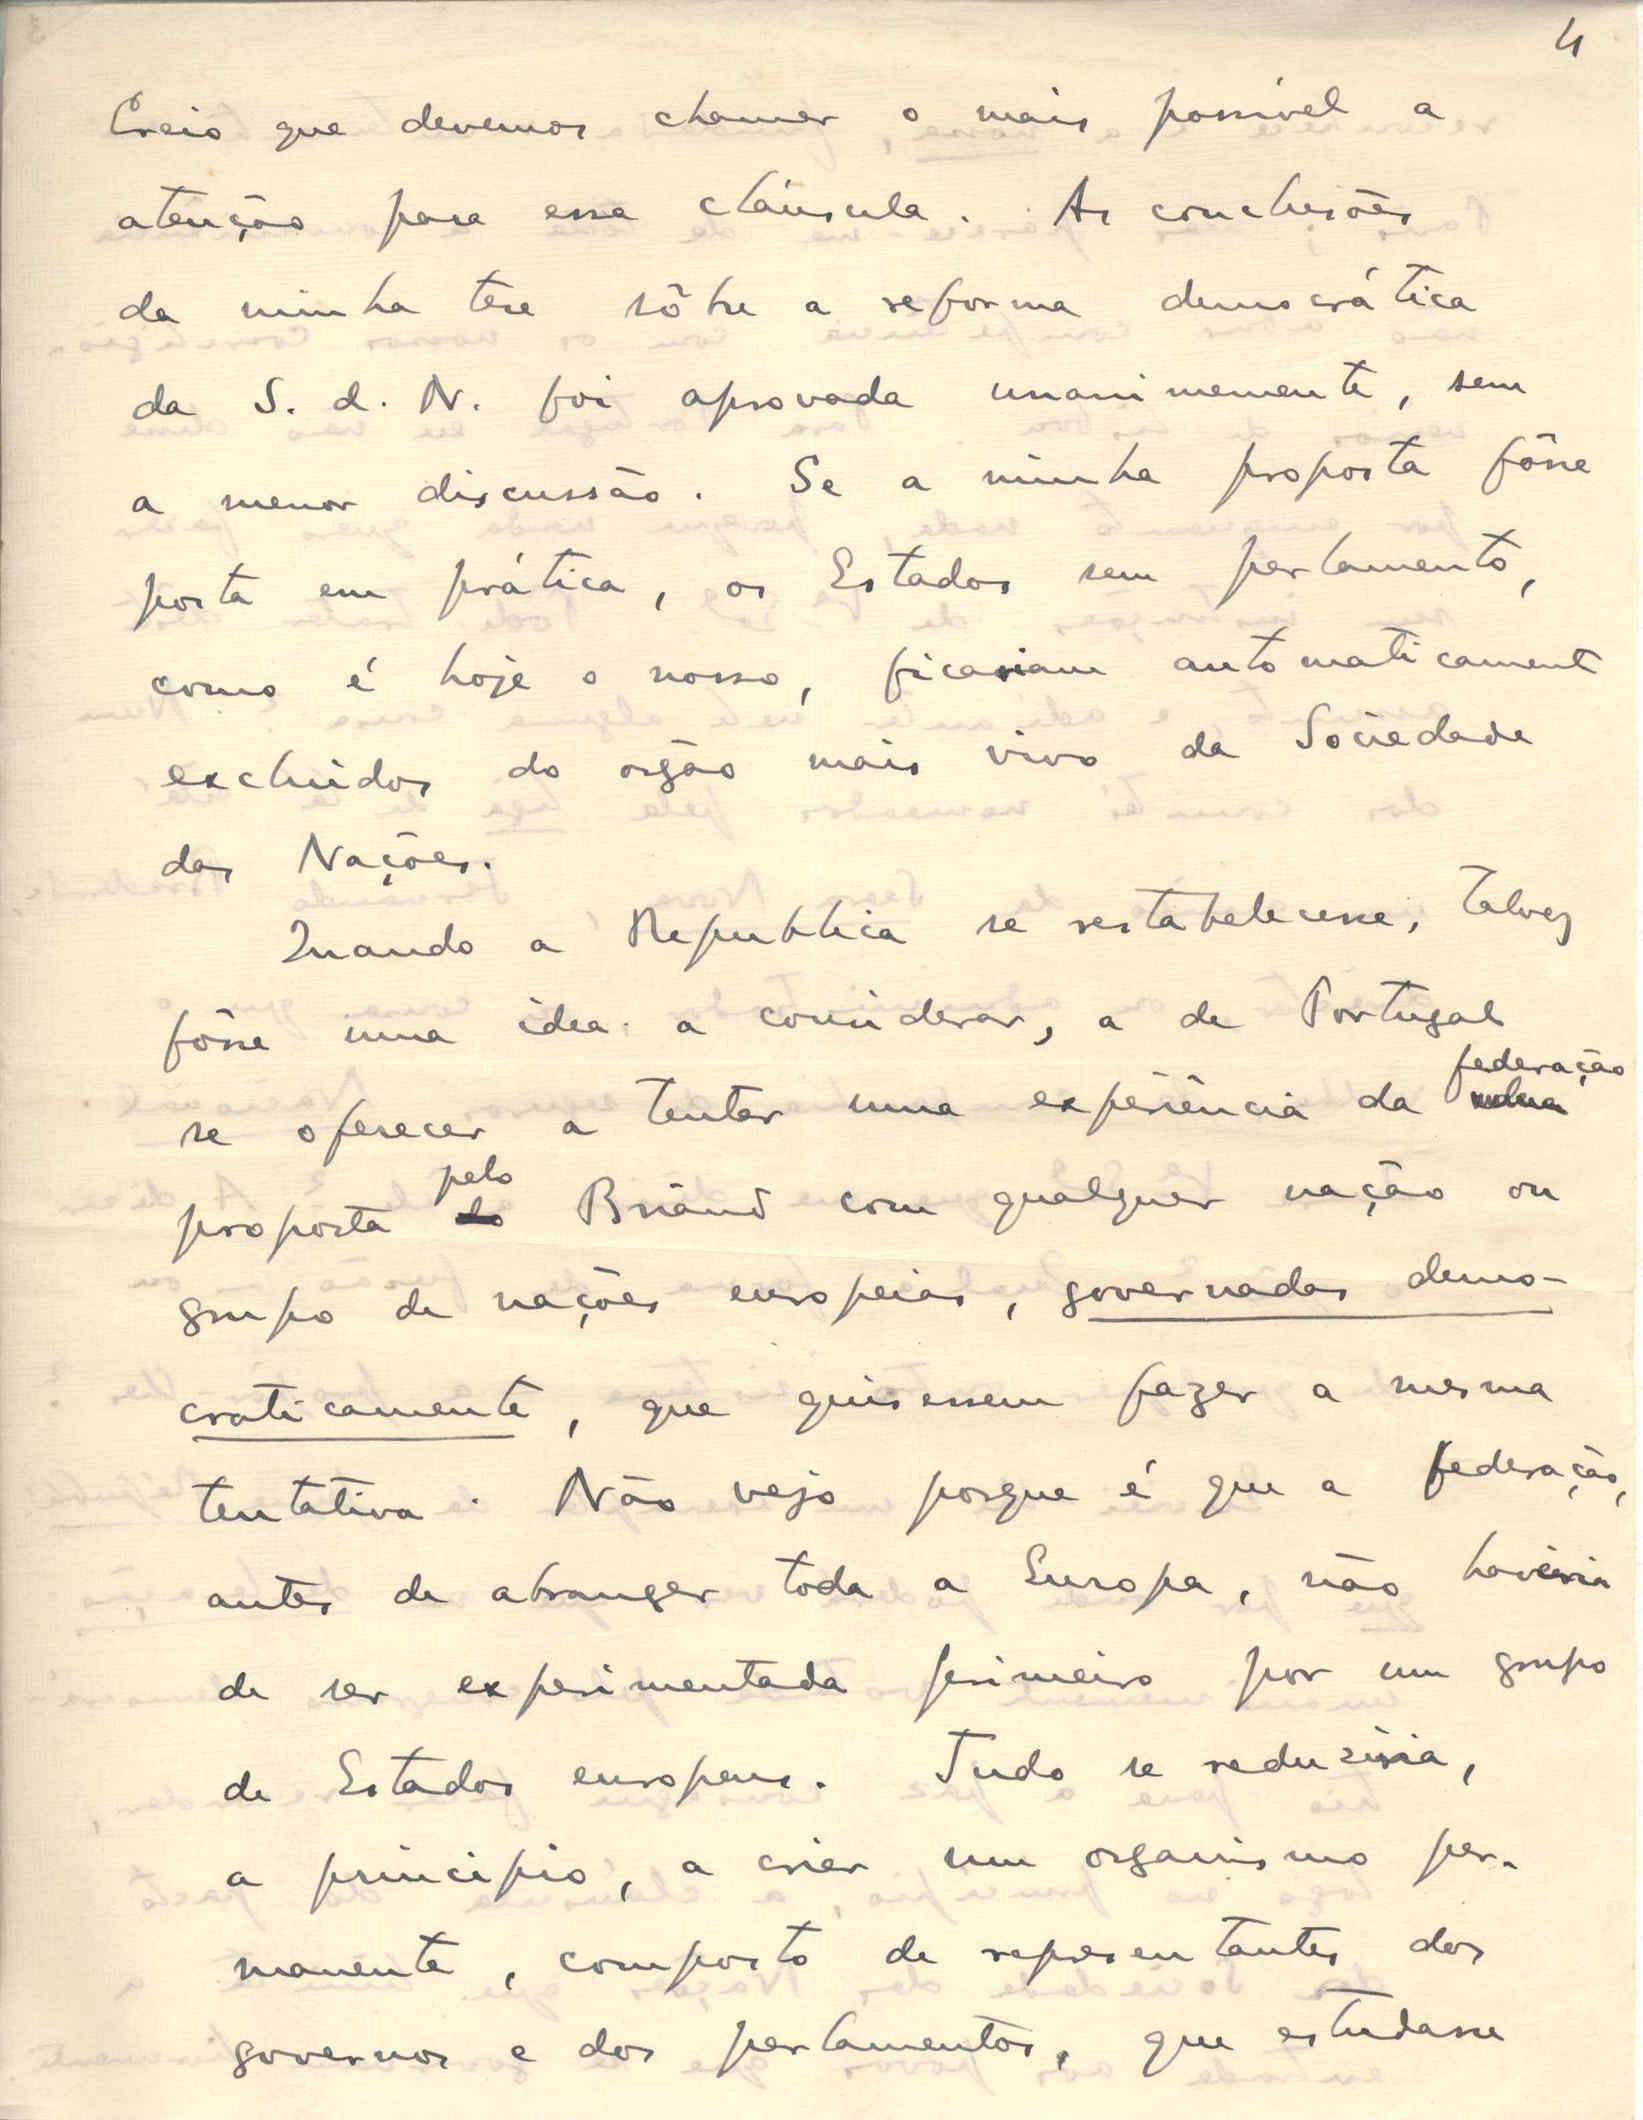 4
Creio que devemos chamar o mais possível a
atenção para essa cláusula. As conclusões
da minha tese sôbre a reforma democrática
da S. d. N. foi aprovada unanimemente, sem
a menor discussão. Se a minha proposta fôsse
posta em prática, os Estados sem parlamento,
como é hoje o nosso, ficariam automaticamente
excluidos do orgão mais vivo da Sociedade
das Nações.
Quando a Republica se restabelecesse, talvez
fôsse uma idea a considerar, a de Portugal
federação
se oferecer a tentar uma experiência da
pelo
proposta do Briand com qualquer nação ou
grupo de nações europeias, governadas demo-
craticamente, que quisessem fazer a mesma
tentativa. Não vejo porque é que a federação,
antes de abranger toda a Europa, não haveria
de ser experimentada primeiro por um grupo
de Estados europeus. Tudo se reduziria,
a principio, a criar um organismo per-
manente, composto de representantes dos
governos e dos parlamentos, que estudasse